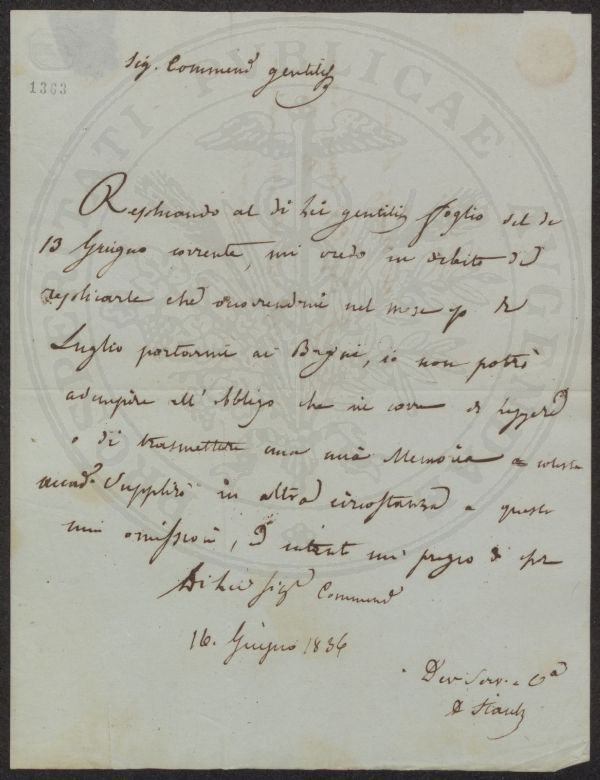 1363
Sig. Commend gentilis
Replicando al di Lei gentilis foglio del dì
13 Giugno corrente, mi credo in debito di
replicarle che dovendomi nel mese p di
Luglio portarmi ai Bagni, io non potrò
adempire all'obbligo che mi corre di leggere
o di trasmettere una mia Memoria a cotesta
accad. Supplirò in altra circostanza a questa
mia omissione, e intanto mi pregio di
Di Lei Sigr Commend
16. Giugno 1836
Dev. Serv. e
PROSPERITATI PUBLICAE AUGENDAE